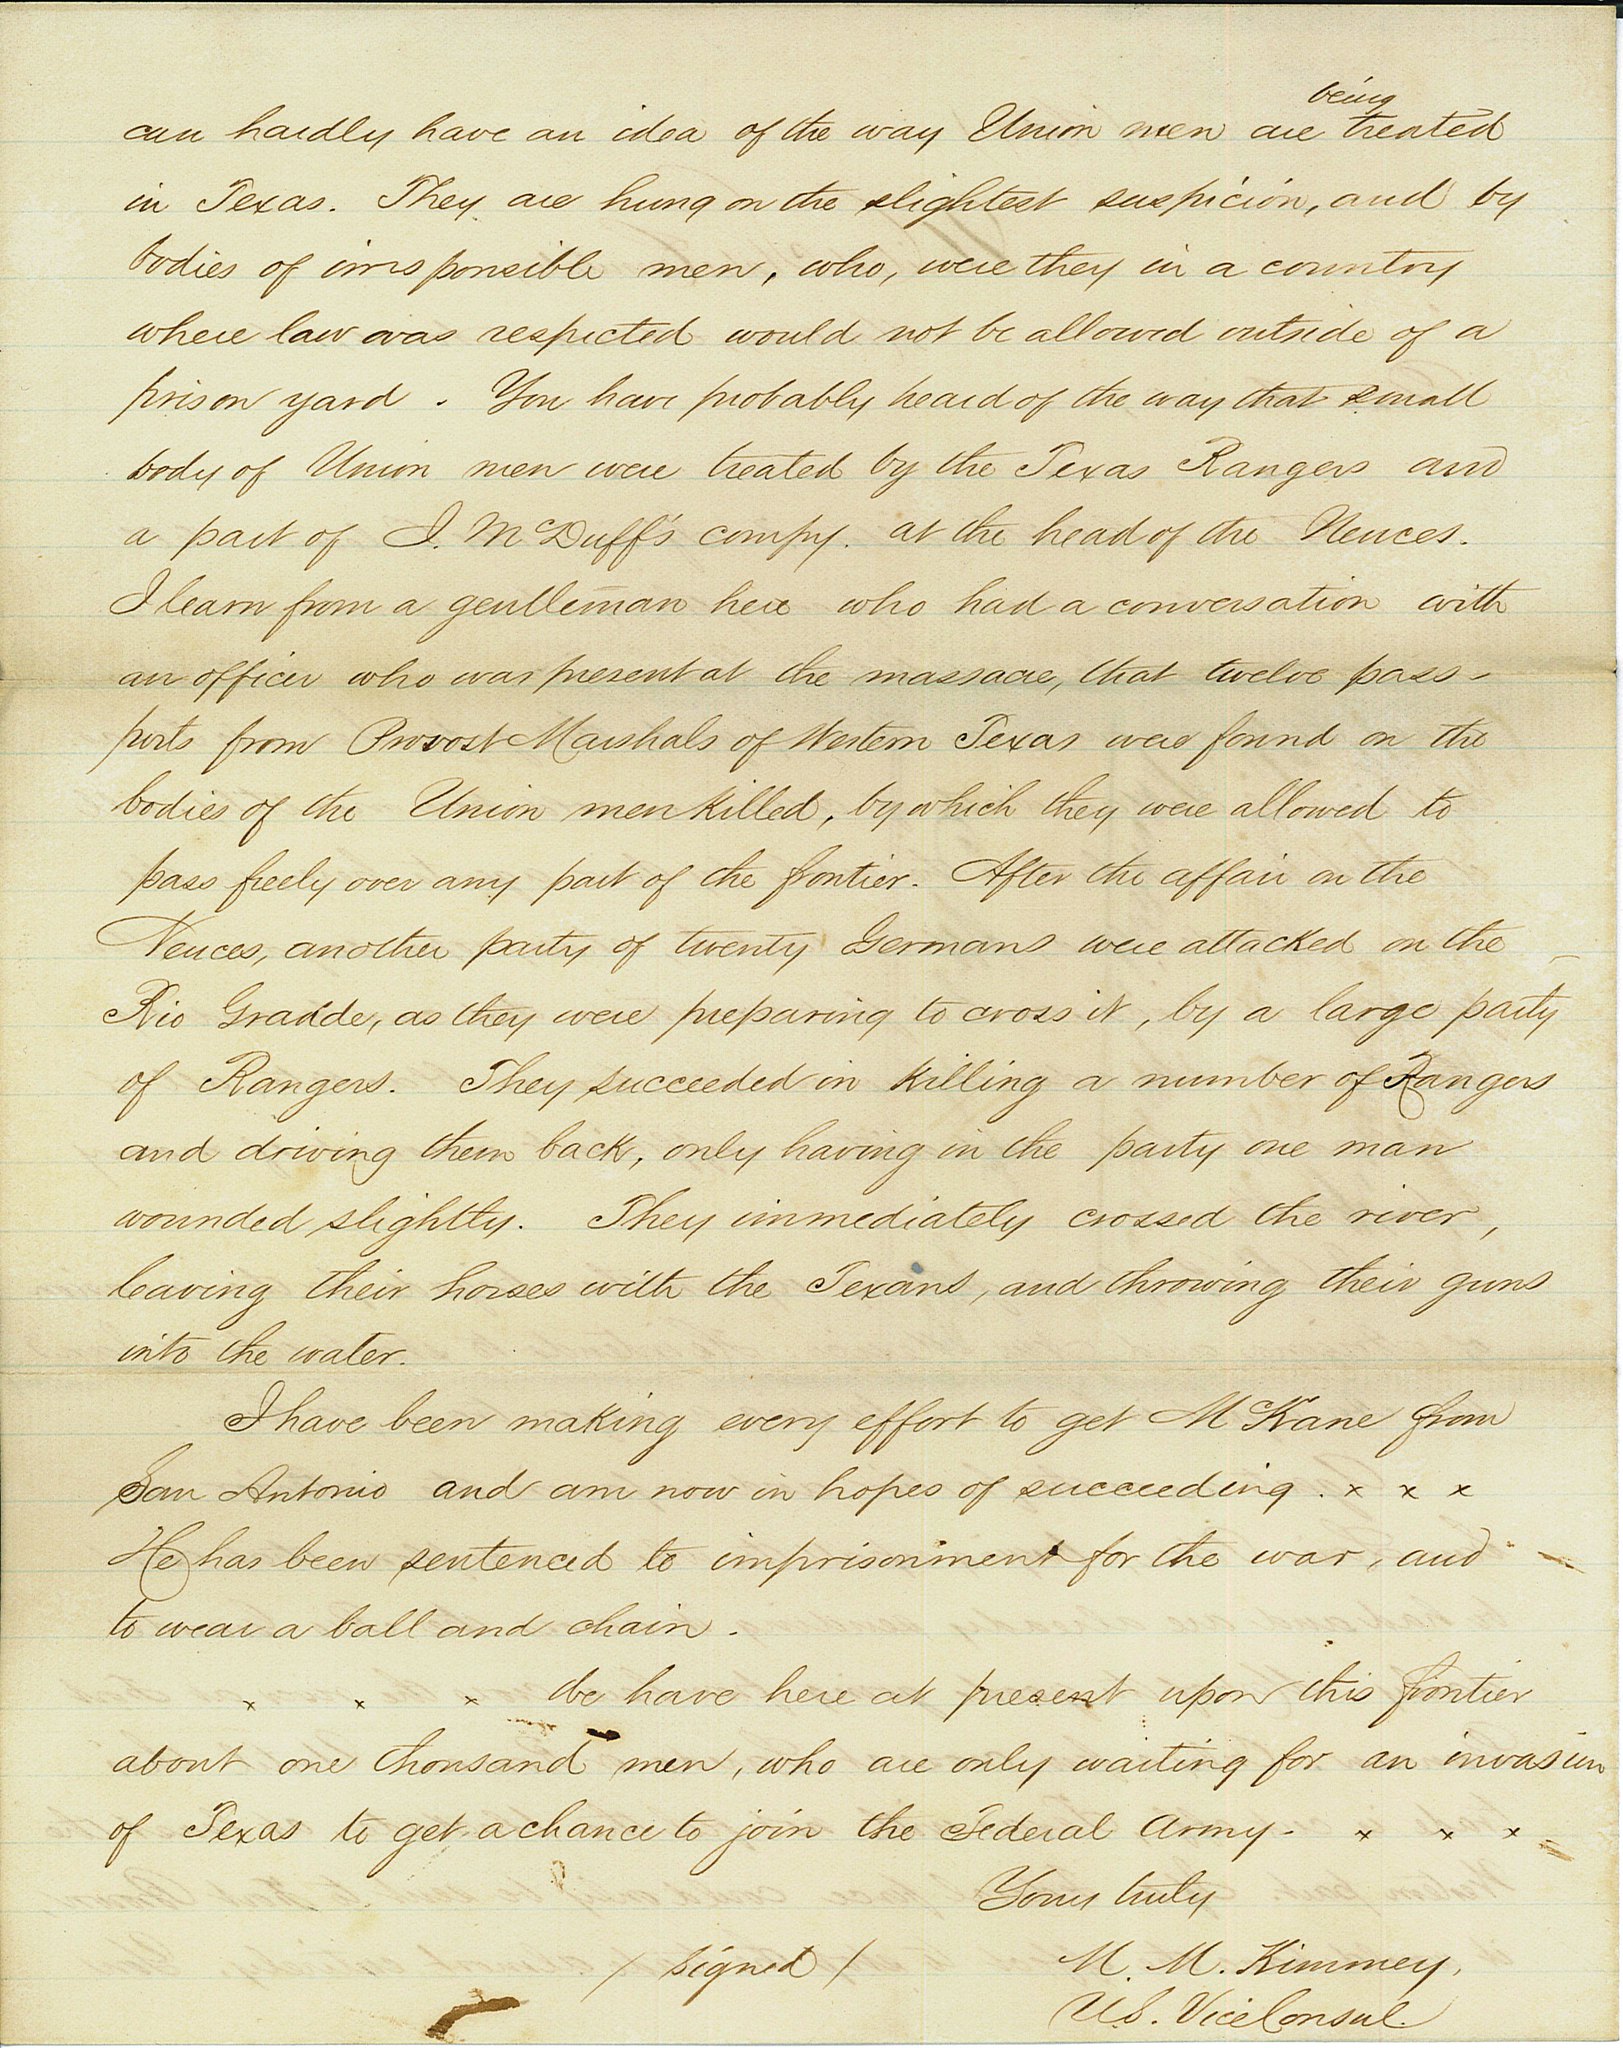 being
can hardly have an idea of the way Union men are treated
in Texas. They are hung on the slightest suspicion, and by
bodies of irresponsible men, who, were they in a country
where law was respected would not be allowed outside of a
prison yard. You have probably heard of the way that small
body of Union men were treated by the Texas Rangers and
a part of J. McDuff's compy. at the head of the Neuces.
I learn from a gentleman here who had a conversation with
an officer who was present at the massacre, that twelve pass-
ports from Provost Marshals of Western Texas were found on the
bodies of the Union men killed, by which they were allowed to
pass freely over any part of the frontier. After the affair on the
Neuces, another party of twenty Germans were attacked on the
Rio Grande, as they were preparing to cross it, by a large party
of Rangers. They succeeded in killing a number of Rangers
and driving them back, only having in the party one man
wounded slightly. They immediately crossed the river,
leaving their horses with the Texans, and throwing their guns
into the water.
I have been making every effort to get McKane from
San Antonio and am now in hopes of succeeding. x x x
He has been sentenced to imprisonment for the war, and
to wear a ball and chain.
x x x We have here at present upon this frontier
about one thousand men, who are only waiting for an invasion
of Texas to get a chance to join the Federal Army. x x x
Yours truly
/ signed / M. M. Kimmey,
U.S. Vice Consul.